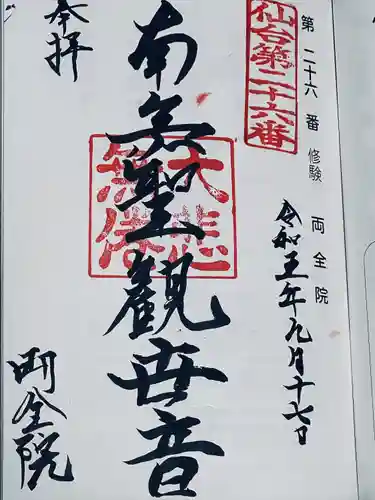 第二十六番 修験 両全院
仙台第二十六番
令和五年九月十七日
奉拝
南無聖観世音
大悲
無
両全院